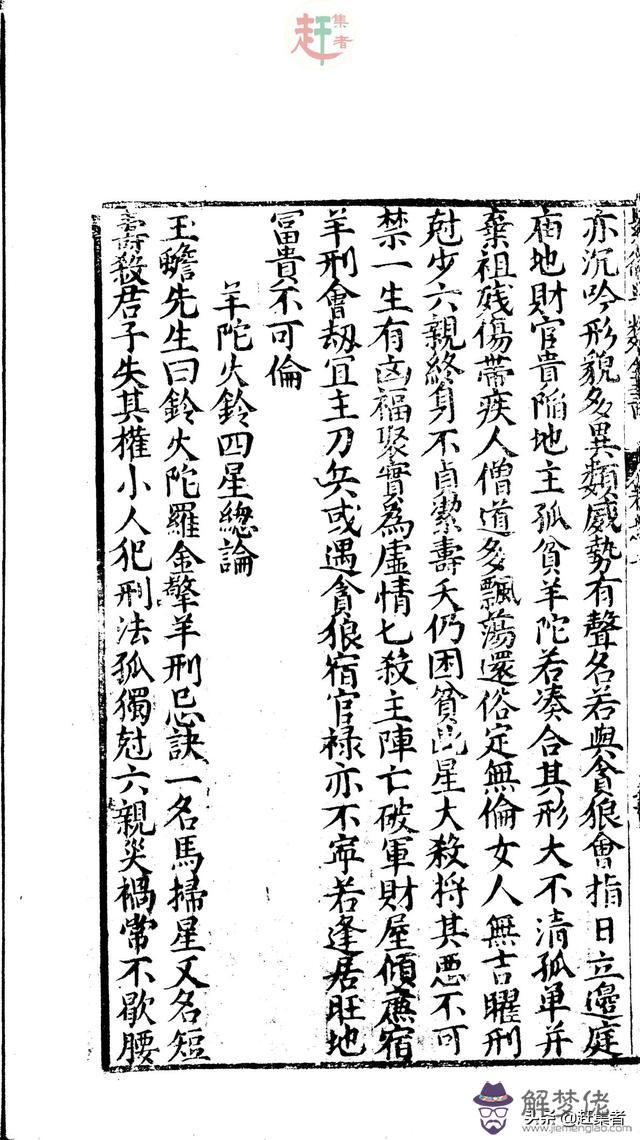 赶集者
亦沉吟形貌多異類威勢有聲名若與貪狼會指日立邊庭
庙地財官貴陷地主孤貧羊陀若凑合其形大不清孤单并
棄祖残傷帶疾人僧道多飄荡還俗定無倫女人無吉曜刑
尅少六親終身不貞潔壽夭仍困貧此星大殺將其悪不可
禁一生有凶福聚實為虛情七殺主陣亡破軍財屋傾亷宿
羊刑會刼宜主刀兵或遇貪狼宿官禄亦不寜若逢居旺地
冨貴不可倫
羊陀火鈴四星總論
玉蟾先生曰鈴火陀羅金擎羊刑忌訣一名馬掃星又名短
壽殺君子失其權小人犯刑法孤獨尅六親災禍常不歇腰
解梦佬
www.jiemenglao.com
头条@赶集者